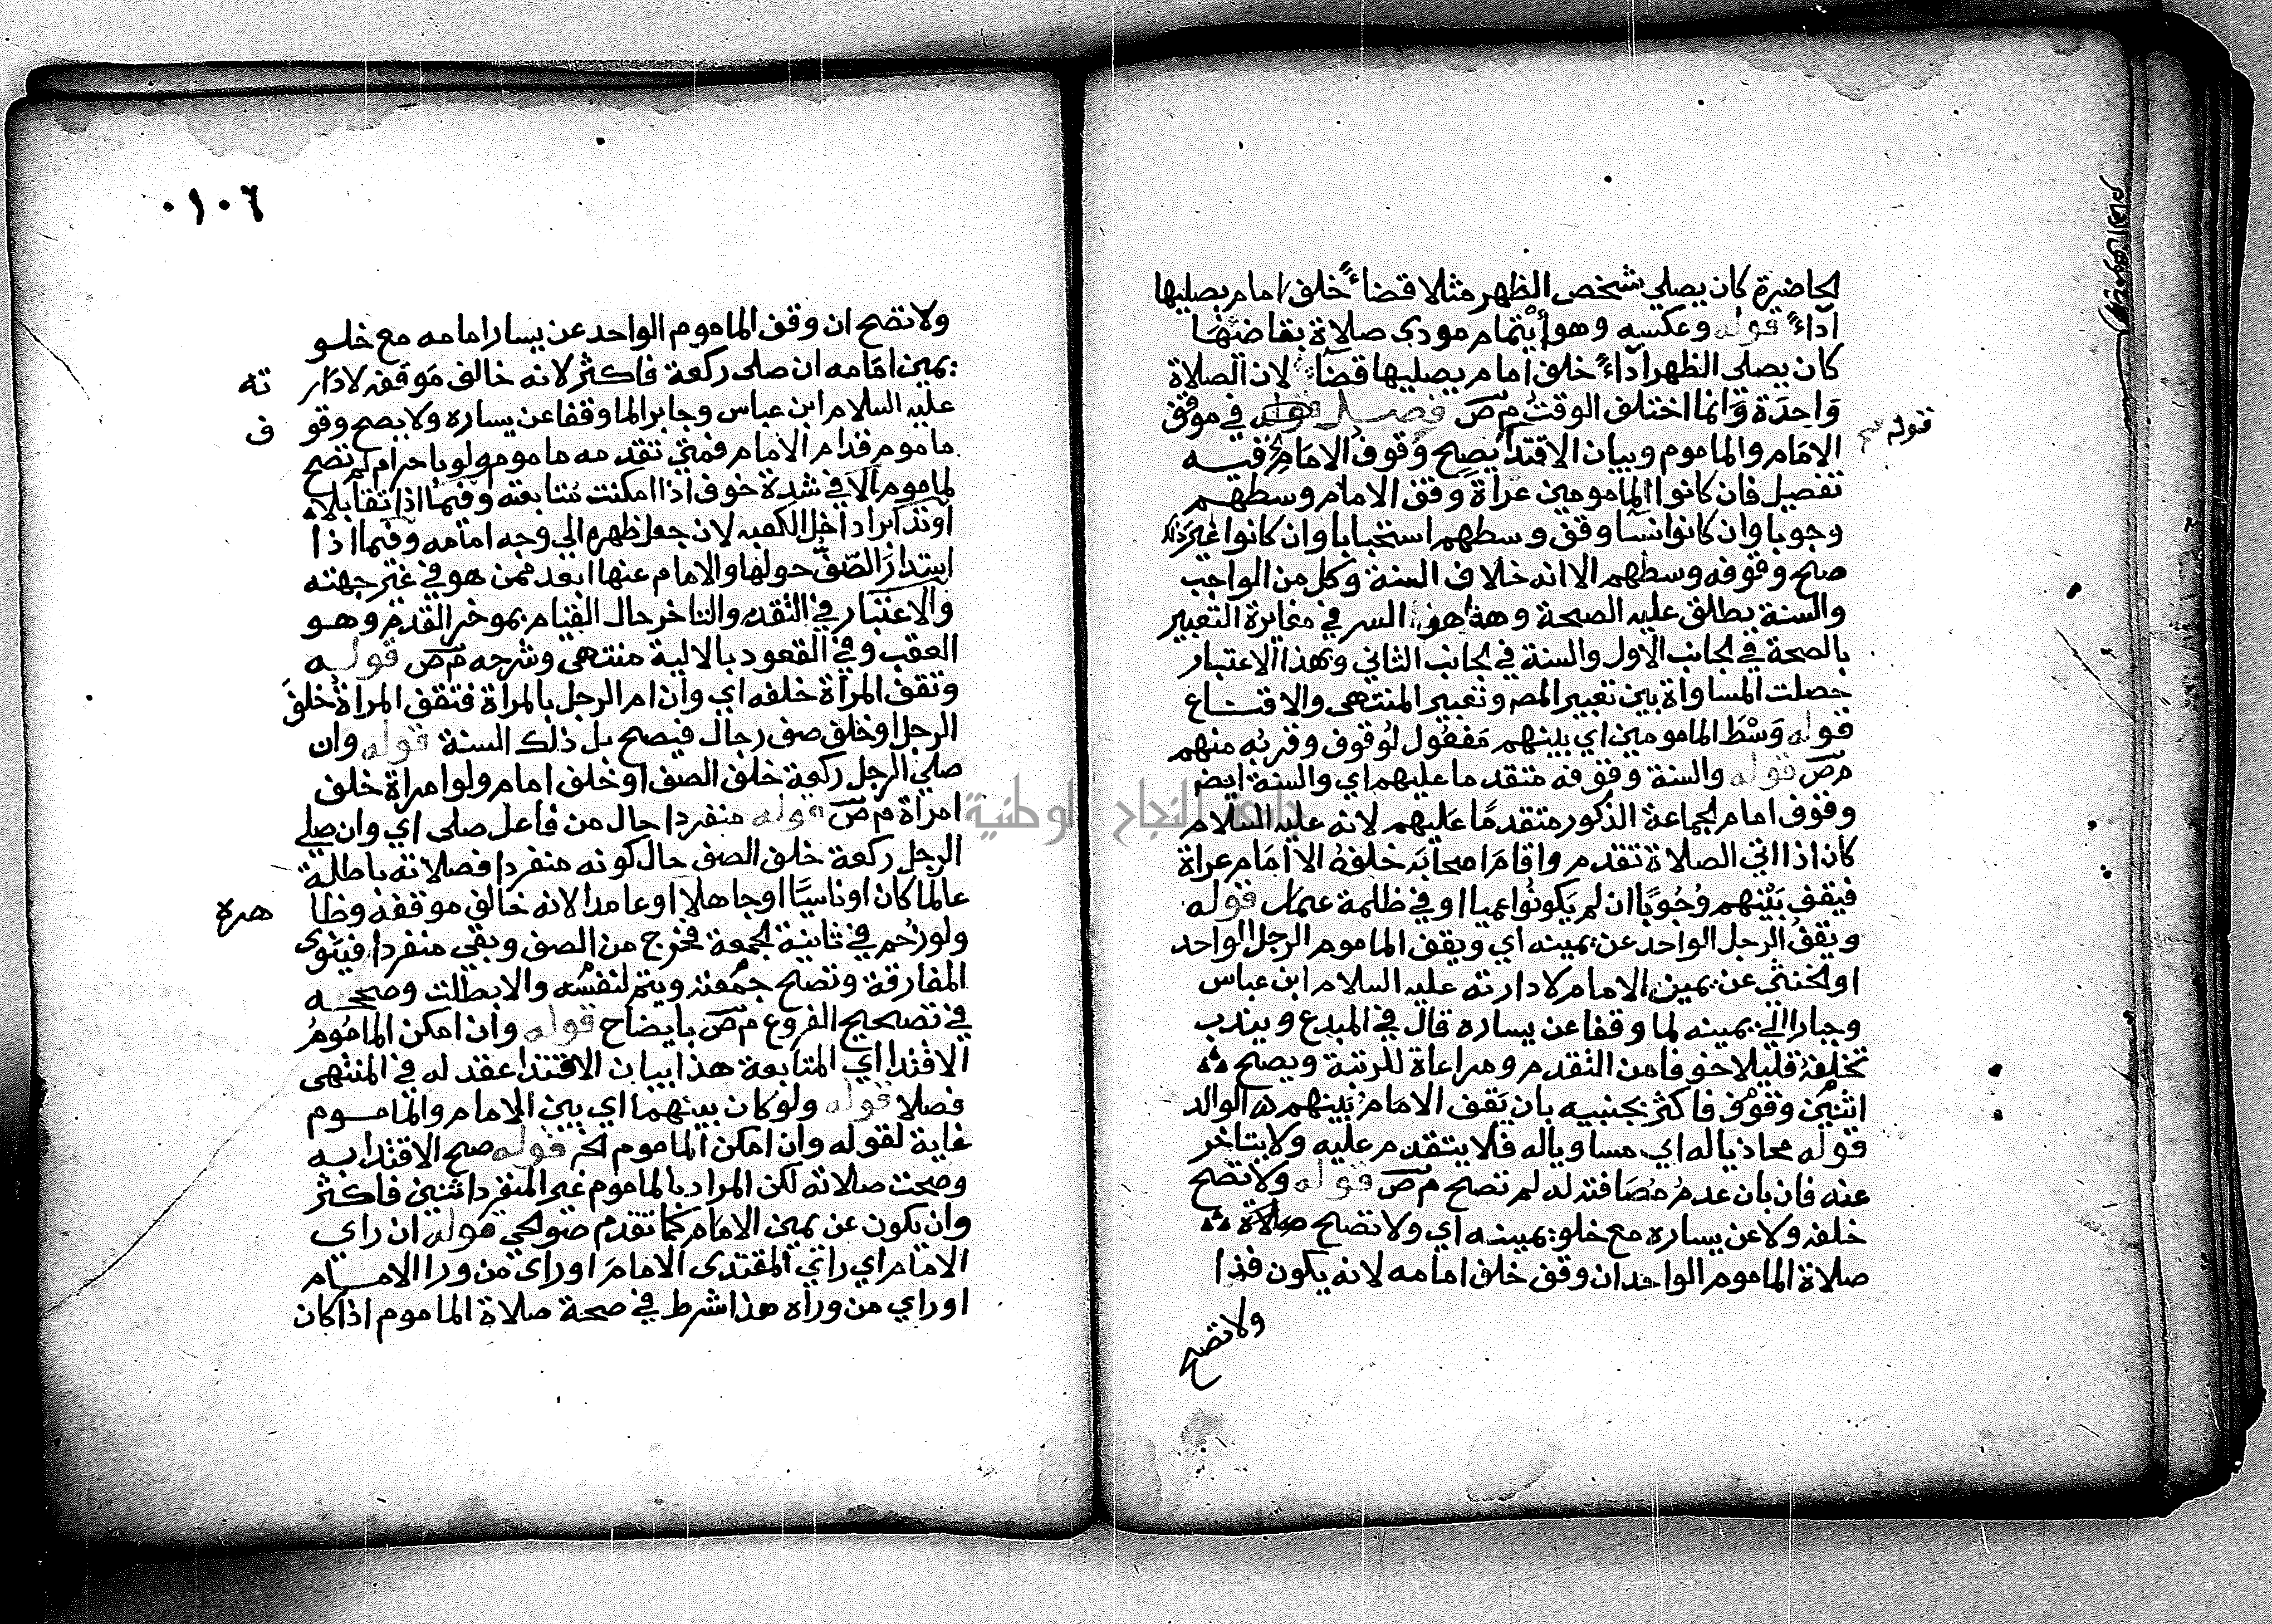 الحاضرة كان يصلي شخص الظهر مثلا قضاءً خلف امام يصليها
آداءً قوله وعكسه وهو أيتمام مودى صلاة بقاضيها
كان يصلى الظهر آداءً خلف امام يصليها قضاء لان الصلاة
وَاحِدَة وَانما اختلف الوقت م ص فصل قوله في موقف
قوله
الامَام والماموم وبيان الاقتدا يصح وقوف الامام فيه
تفصيل فان كانوا المامومين عراة وقف الامام وسطهم
وجوبا وان كانوا نسا وقف وسطهم استحبابا وان كانوا غير ذلك
صح وقوفه وسطهم الا انه خلاف السنة وكل من الواجب
والسنة يطلق عليه الصحة وهذا هو السر في مغايرة التعبير
بالصحة في الجانب الاول والسنة في الجانب الثاني وبهذا الاعتبار
حصلت المساواة بين تعبير المص وتعبير المنتهى والاقناع
قوله وَسْطَ المامومين اي بينهم مفعول لوقوف وقربه منهم
م ص قوله والسنة وقوفه متقدما عليهم اي والسنة ايض
وقوف امام الجماعة الذكور متقدمًا عليهم لانه عليه السلام
كان اذا اتى الصلاة تقدم واقامَ اصحابَه خلفهُ الا امَام عراة
فيقف بَيْنهم وُجُوبًا ان لم يَكونُوا عميا او في ظلمة عماد قوله
ويقف الرجل الواحد عن يمينه اي ويقف الماموم الرجل الواحد
او الخنثى عن يمين الامام لادارته عليه السلام ابن عباس
وجبارا الي يمينه لما وقفا عن يساره قال في المبدع ويندب
تخلفهُ قليلا خوفا من التقدم ومراعاة للرتبة ويصح
اثنين وقوف فاكثر بجنبيه بان يَقف الامَامُ بَينهم اه الوالد
قوله محاذيا له اي مساويا له فلا يتقدم عليه ولا يتاخر
عنه فان بان عدمُ مُصَافته له لم تصح م ص قوله ولا تصح
خلفه ولا عن يساره مع خلو يمينه اي ولا تصح صلاة
صلاة الماموم الواحد ان وقف خلف امامه لانه يكون فذا
ولا تصح
٠١٠٦
ولا تصح ان وقف الماموم الواحد عن يسار امامه مع خلو
يمين امَامه ان صلى ركعة فاكثر لانه خالف مَوقفه لادَار ته
عليه السلام ابن عباس وجابر الما وقفا عن يساره ولا يصح وقو ف
ماموم قدام الامام فمتى تقدمه مامومه ولو باحرام لم تصح
لماموم الا في شدة خوف اذا امكنت متابعته وفيما اذا تقابلا
او تدابرا داخل الكعبه لان جعل ظهره الي وجه امامه وفيما اذا
استدار الصّفّ حولها والامام عنها ابعد ممن هو في غير جهته
والاعتبار في التقدم والتاخر حال القيام بموخر القدم وهو
العقب وفي القعود بالالية منتهى وشرحه م ص قوله
وتقف المرأة خلفه اي وان ام الرجل بالمراة فتقف المراة خلفَ
الرجل او خلف صف رجال فيصح بل ذلك السنة قوله وان
صلي الرجل ركعة خلف الصف او خلف امام ولو امراة خلف
امرأة م ص قوله منفردا حال من فاعل صلى اي وان صلي
الرجل ركعة خلف الصف حال كونه منفردا فصلاته باطلة
عالما كان او ناسيًا او جاهلا او عامدا لانه خالف موقفه وظا هره
ولو زُحم في ثانية الجمعة فخرج من الصف وبقي منفردا فينوى
المفارقة وتصح جمعته ويتم لنفسه والا بطلت وصححه
في تصحيح الفروع م ص بايضاح قوله وان امكن المامُومُ
الاقتدا اي المتابعة هذا بيان الاقتدا عقد له في المنتهى
فصلا قوله ولو كان بينهما اي بين الامام والماموم
غاية لقوله وان امكن الماموم الخ قوله صح الاقتدا به
وصحت صلاته لكن المراد بالماموم غير المنفرد اثنين فاكثر
وان يكون عن يمين الامام كما تقدم صوالحي قوله ان راي
الامام اي راي المقتدى الامامَ او راى من ورا الامام
او راي من وراه هذا شرط في صحة صلاة الماموم اذا كان
جامعة النجاح الوطنية